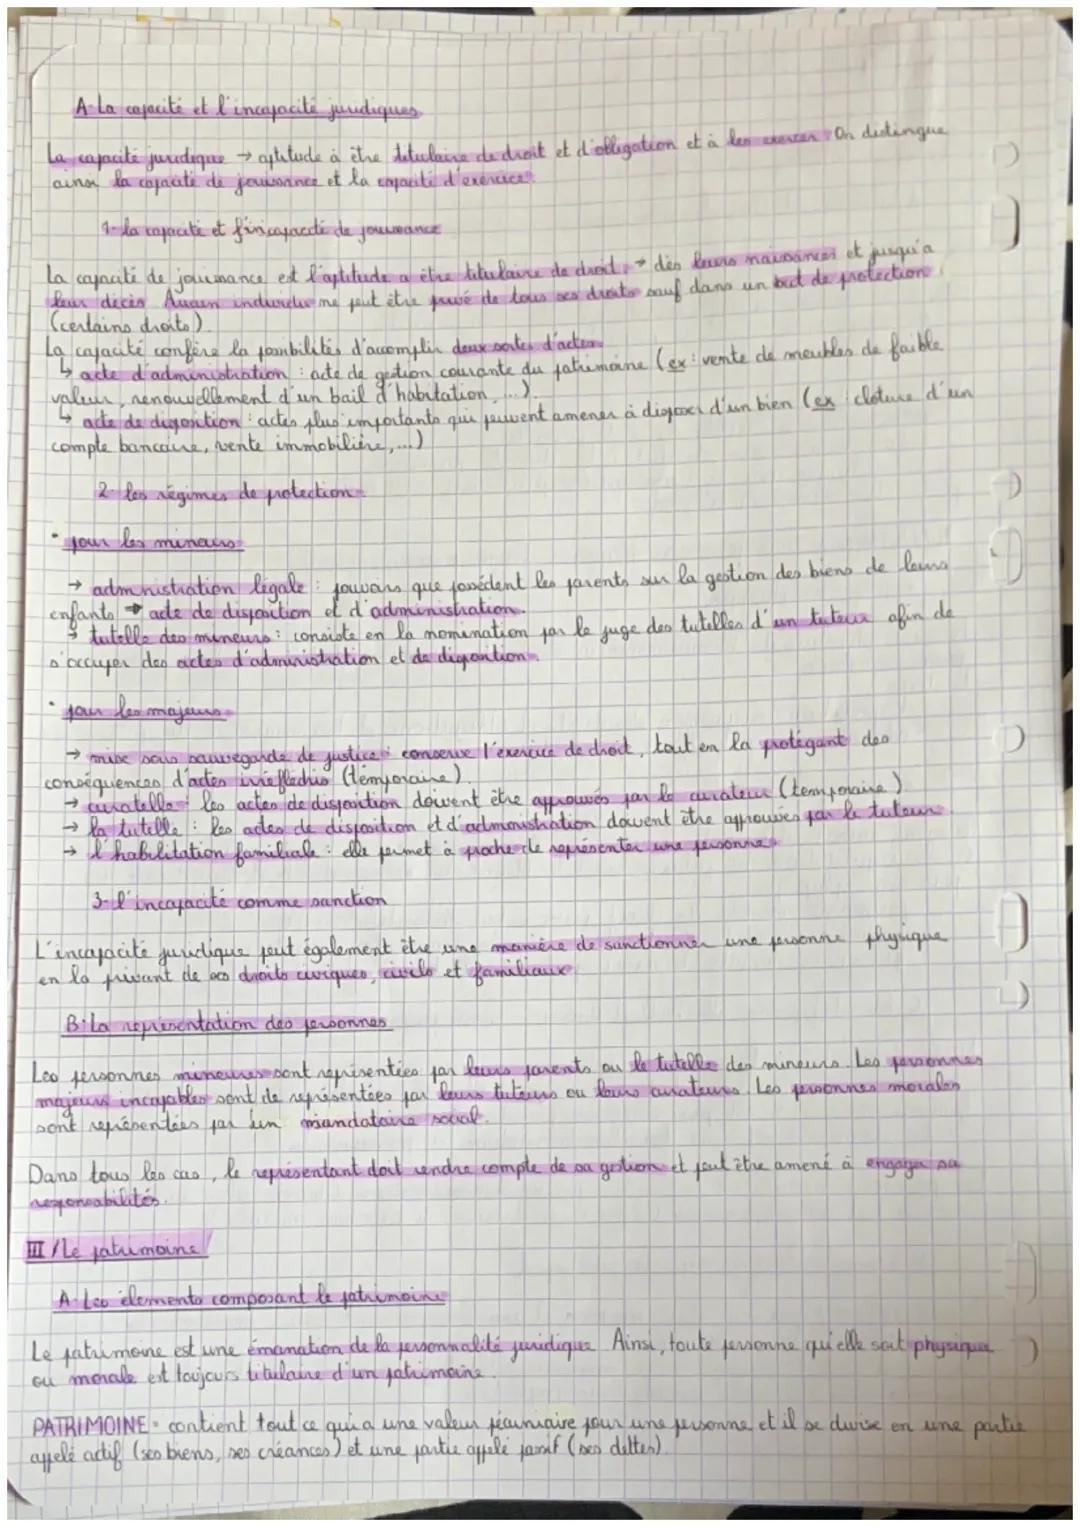 A- La capacité et l'incapacité juridiques
La capacité juridique → aptitude à être titulaire de droit et d'obligation et à les exercer. On distingue
ainsi la capacité de jouissance et la capacité d'exercice.
1- la capacité et l'incapacité de jouissance
La capacité de jouissance est l'aptitude a être titulaire de droit, → dès leurs naissances et jusqu'a
leur décès Aucun individu ne peut être privé de tous ses droits sauf dans un but de protection
(certains droits).
La capacité confère la possibilités d'accomplir deux sortes d'actes
↳ acte d'administration : acte de gestion courante du patrimoine (ex : vente de meubles de faible
valeur, renouvellement d'un bail d'habitation, ...).
↳ acte de disposition : actes plus importants qui peuvent amener à disposer d'un bien (ex : cloture d'un
compte bancaire, vente immobilière, ...)
2- les régimes de protection
• pour les mineurs
→ administration légale : pouvoirs que possèdent les parents sur la gestion des biens de leurs
enfants → acte de disposition et d'administration.
→ tutelle des mineurs : consiste en la nomination par le juge des tutelles d'un tuteur afin de
s'occuper des actes d'administration et de disposition
• pour les majeurs
→ mise sous sauvegarde de justice : conserve l'exercice de droit, tout en la protégant des
conséquences d'actes irréfléchis (temporaire).
→ curatelle : les actes de disposition doivent être approuvés par le curateur (temporaire)
→ la tutelle : les actes de disposition et d'administration doivent être approuvés par le tuteur
→ l'habilitation familiale : elle permet à proche de représenter une personne
3- l'incapacité comme sanction
L'incapacité juridique peut également être une manière de sanctionner une personne physique
en la privant de ses droits civiques, civils et familiaux
B- La représentation des personnes
Les personnes mineures sont représentées par leurs parents ou le tutelle des mineurs. Les personnes
majeurs incapables sont de représentées par leurs tuteurs ou leurs curateurs. Les personnes morales
sont représentées par un mandataire social.
Dans tous les cas, le représentant doit rendre compte de sa gestion et peut être amené à engager sa
responsabilités.
III / Le patrimoine
A- Les élements composant le patrimoine
Le patrimoine est une émanation de la personnalité juridique Ainsi, toute personne qu'elle soit physique
ou morale est toujours titulaire d'un patrimoine.
PATRIMOINE = contient tout ce qui a une valeur pécuniaire pour une personne et il se divise en une partie
appelé actif (ses biens, ses créances) et une partie appelé passif (ses dettes)